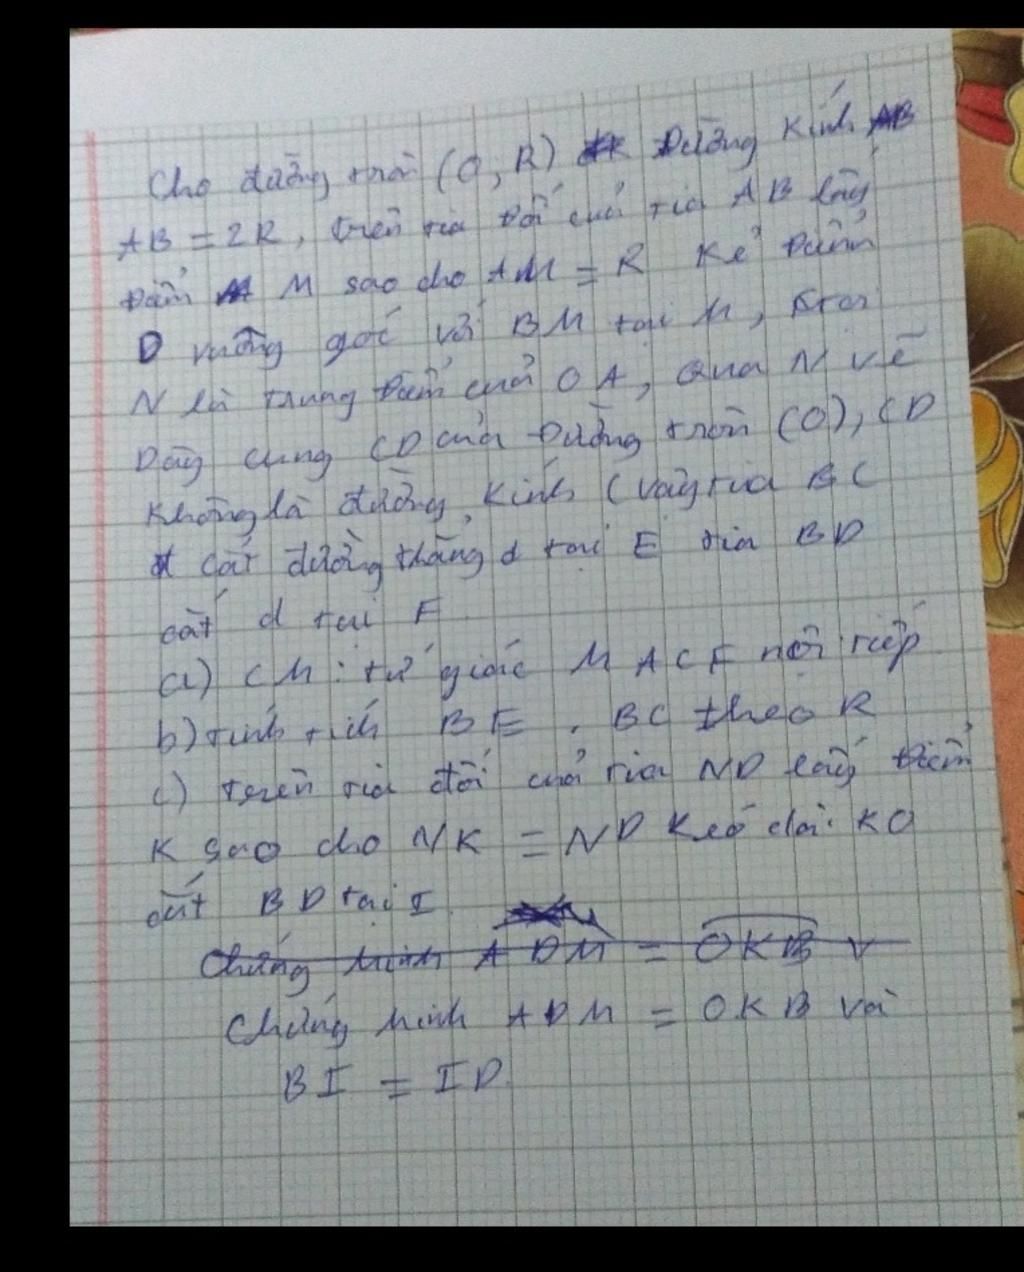 Cho đường tròn (O, R) Đường kính AB
AB = 2R, trên tia đối của tia AB lấy
điểm M sao cho AM = R Kẻ
D vuông góc với BM tại M,
N là trung điểm của OA, Qua N vẽ
Dây cung CD của Đường tròn (O), CD
không là đường kính (vậy tia BC
cắt đường thẳng d tại E tia BD
cắt d tại F
a) CM: tứ giác MACE nội tiếp
b) tính tích BE . BC theo R
c) trên tia đối của tia ND lấy điểm
K sao cho NK = ND Kéo dài KO
cắt BD tại I
Chứng minh ADM = OKB v
Chứng minh ADM = OKB và
BI = ID